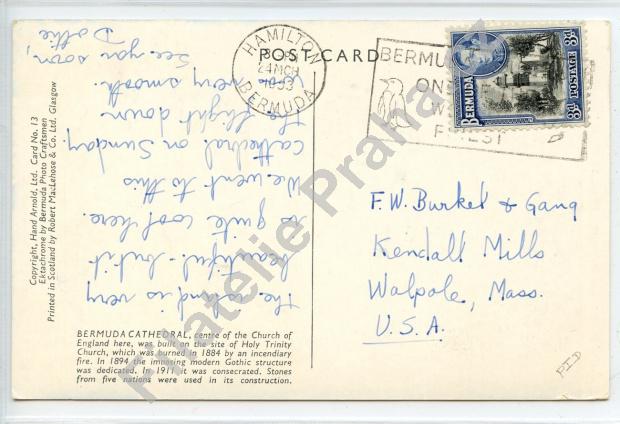 POST CARD
HAMILTON
24 MCH
1953
BERMUDA
BERMUDA
3d POSTAGE 3d
The island is very
beautiful - but it
is quite cool here.
We went to this
cathedral on Sunday.
The flight down
was very smooth.
See you soon,
Dottie
F.W. Burket & Gang
Kendall Mills
Walpole, Mass.
U.S.A.
BERMUDA CATHEDRAL, centre of the Church of
England here, was built on the site of Holy Trinity
Church, which was burned in 1884 by an incendiary
fire. In 1894 the imposing modern Gothic structure
was dedicated. In 1911 it was consecrated. Stones
from five nations were used in its construction.
Copyright, Hand Arnold, Ltd. Card No. 13
Ektachrome by Bermuda Photo Craftsmen
Printed in Scotland by Robert MacLehose & Co. Ltd. Glasgow
Filatelie Praha